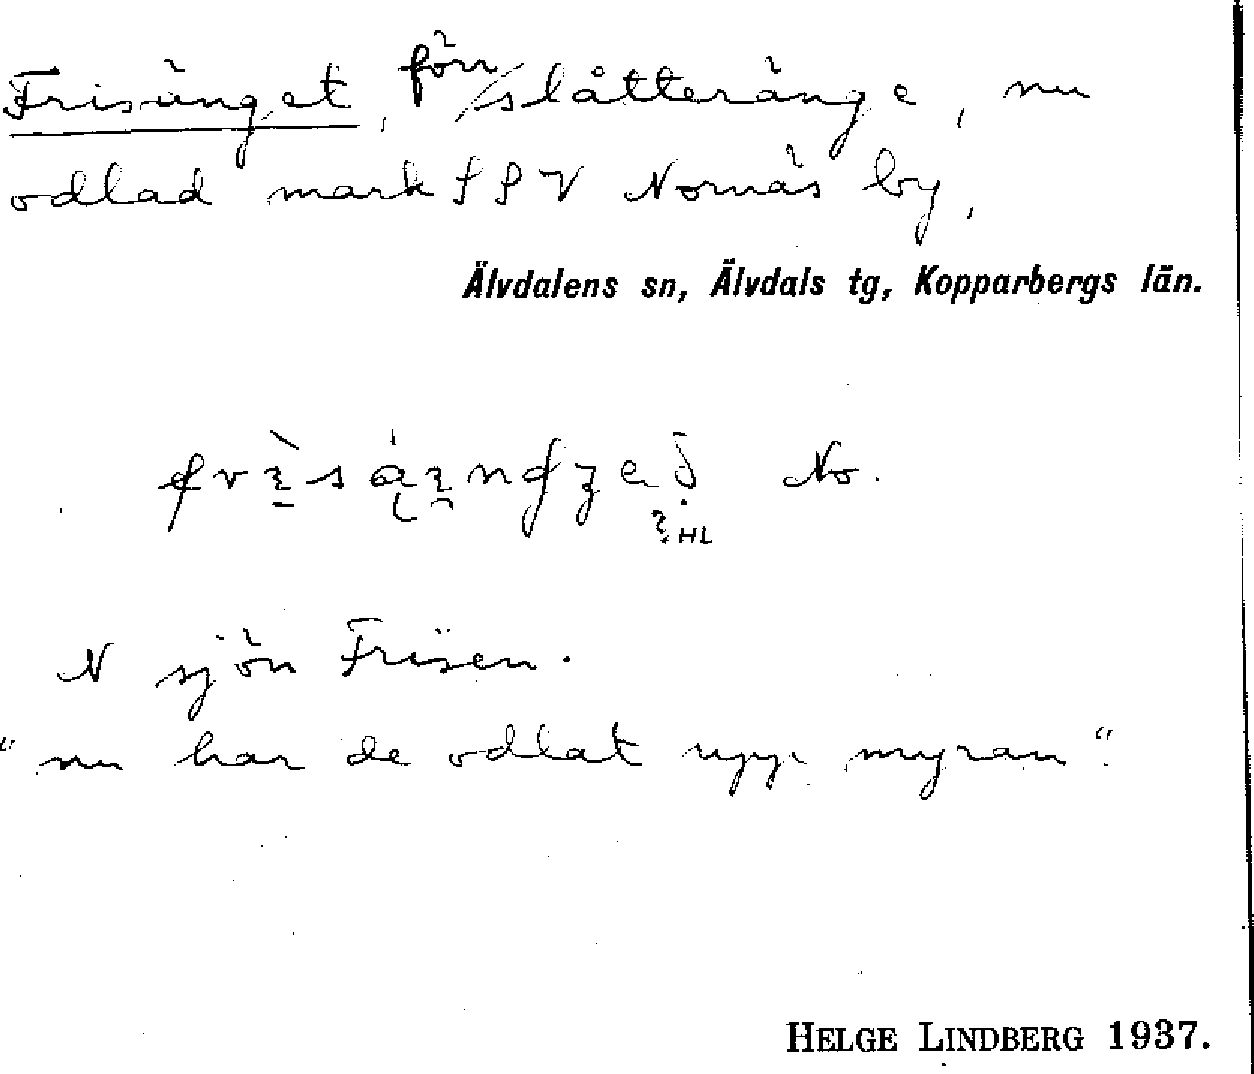 Frisänget, förr slåtteränge, nu
odlad mark S S V Nornäs by,
Älvdalens sn, Älvdals tg, Kopparbergs län.
No.
HL
N sjön Frisen.
"nu har de odlat upp myran".
HELGE LINDBERG 1937.